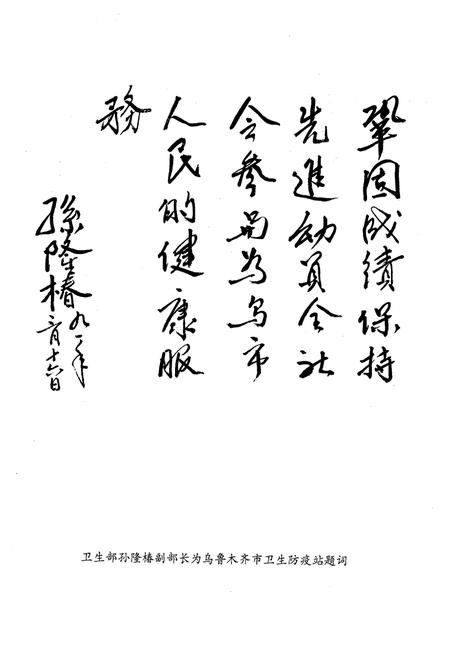 鞏固成績保持
先進動員全社
会參與為乌市
人民的健康服
務
孫隆椿九一年
月十六日
卫生部孙隆椿副部长为乌鲁木齐市卫生防疫站题词